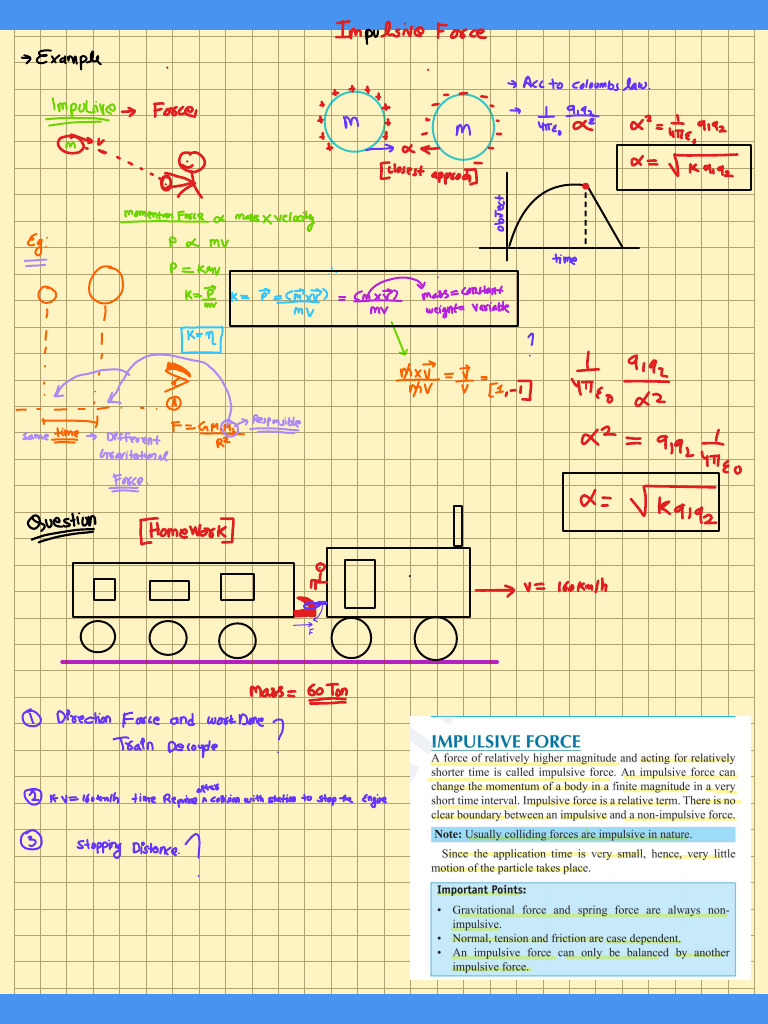 Impulsive Force
→ Example
Impulsive → Force,
m
v
+ + + + + + + + + +
m
- - - - - - - - - -
m
α
[closest approch]
→ Acc to coloumbs law.
→ 1/4πε0 q1q2/α²
α² = 1/4πε0 q1q2
α = √K q1q2
object
time
momentum Force α mass x velocity
P α mv
P = Kmv
K = P/mv
K = P/mv = (m×v)/mv = (m×v)/mv
mass = constant
weight = variable
K = η
Eg:
m×v/mv = v/v = [1,-1]
?
F = GM1M2/R²
→ Responsible
same time → Different
Gravitational
Force.
1/4πε0 q1q2/α2
α² = q1q2 1/4πε0
α = √K q1q2
Question
[HomeWork]
F
v = 160 Km/h
Mass = 60 Ton
① Direction Force and workDone
Train Decouple ?
② v = 160km/h time Require after collision with station to stop the Engine
③ Stopping Distance. ?
IMPULSIVE FORCE
A force of relatively higher magnitude and acting for relatively
shorter time is called impulsive force. An impulsive force can
change the momentum of a body in a finite magnitude in a very
short time interval. Impulsive force is a relative term. There is no
clear boundary between an impulsive and a non-impulsive force.
Note: Usually colliding forces are impulsive in nature.
Since the application time is very small, hence, very little
motion of the particle takes place.
Important Points:
• Gravitational force and spring force are always non-
impulsive.
• Normal, tension and friction are case dependent.
• An impulsive force can only be balanced by another
impulsive force.